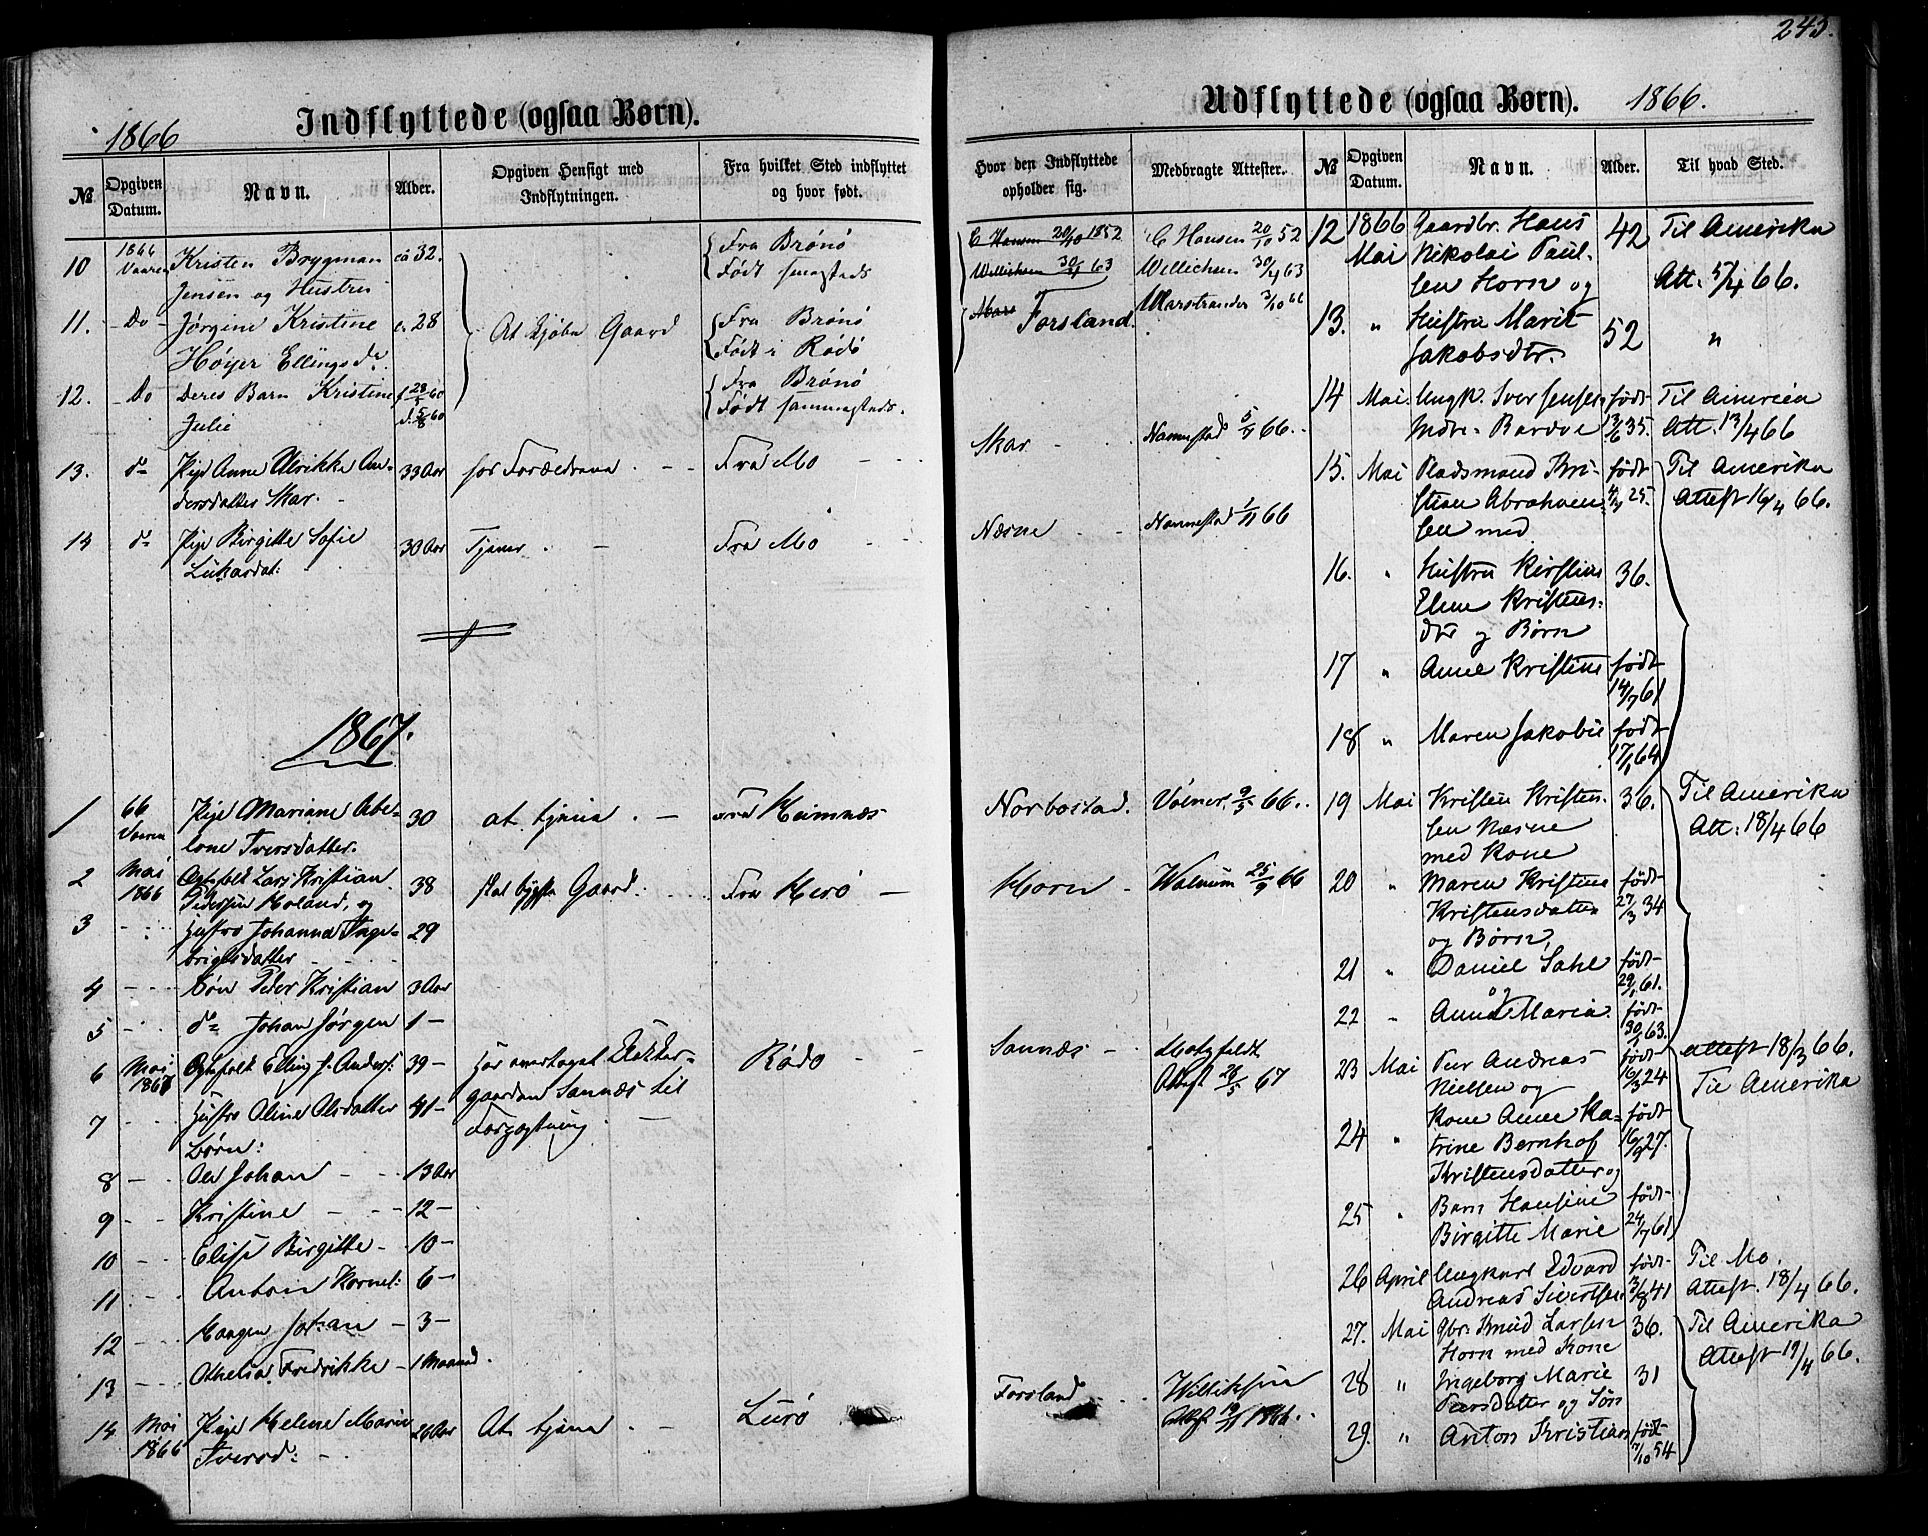 243.
1866
Indflyttede (ogsaa Børn).
№
Opgiven Datum.
Navn.
Alder.
Opgiven Hensigt med Indflytningen.
Fra hvilket Sted indflyttet og hvor født.
Hvor den Indflyttede opholder sig.
Medbragte Attester.
10 1866 Vaaren Kristen Brygman ca 32. Fra Brønø C Hansen 20/10 1852 C Hansen 20/10 52
Jensen og Hustru Født samesteds Willichsen 30/4 63 Willichsen 30/4 63
11. Do Jørgine Kristine c. 28 At kjøbe Gaard Fra Brønø Forsland. Marstrander 3/10 66
Høyer Ellingsdr. Født i Rødø
12. Do Deres Barn Kristine f 23/5 60 Fra Brønø
Julie d. 5/8 60 Født sammesteds.
13. do Pige Anne Ulrikke An- 33 Aar hos Forældrene Fra Mo Skar Nannestad 5/9 66.
dersdatter Skar.
14 do Pige Birgitte Sofie 30 Aar Tjener Fra Mo Næsne Nannestad 1/11 66
Lukasdat:
1867.
1 66 Vaaren Pige Mariane Abe- 30 at tjene Fra Hemnæs Norbostad. Volner 9/5 66.
lone Iversdatter.
2 Mai 1866 Ægtefolk Lars Kristian 38 skal bygsle Gaard. Fra Herø Horn Walnum 25/9 66
Pedersen Moland, og
3 Hustro Johanna Inge- 29
brigtsdatter
4 Søn Peder Kristian 3 Aar
5 do Johan Jørgen 1
6 Mai 1867 Ægtefolk Elling J. Anders: 39 Har overtaget Klokker- Rødø Sannæs Motzfeldt
gaarden Sannæs til Attest 28/5 67
7 Hustro Oline Olsdatter 41 Forpagtning
Børn:
8 Ole Johan 13 Aar
9 Kristine 12
10 Elisa Birgitte 10
11 Anton Kornel: 6
12 Haagen Johan 3
13 Athelia Fredrikke 1 Maaned.
14 Mai 1866 Pige Helene Marie 26 Aar At tjene Lurø Forsland Willichsen
Iversd: Attest 1866.
Udflyttede (ogsaa Børn). 1866.
№
Opgiven Datum.
Navn.
Alder.
Til hvad Sted.
12 1866 Mai Gaardbr. Hans 42 Til Amerika
Nikolai Paul- Att. 5/4 66.
sen Horn og
13. " Hustru Marit 52 "
Jakobsdtr.
14 Mai Ungk. Iver Jensen født Til Amerika
Indre-Bardve 13/6 35. Att. 13/4 66
15. Mai Pladsmand Kri- født Til Amerika
stian Abraham- 25. Attest 16/4 66.
sen med
16. " Hustru Kirstine 36.
Elene Kristens-
dtr og Børn
17 " Anne Kristine født 14/7 61
18 " Maren Jakobie født 17/1 64
19 Mai Kristen Kristen- 36. Til Amerika
sen Næsne Att: 18/4 66
med Kone
20 " Maren Kristine født 27/3 34
Kristensdatter
og Børn,
21 " Daniel Dahl født 29/1 61.
og
22 " Anna Maria. født 30/1 63.
23 Mai Peer Andreas født 16/3 24 Attest 18/3 66.
Nielsen og Til Amerika
24 " Kone Anne Ka- født 16/9 27.
trine Bernhof
Kristensdatter og
25 " Barn Hansine født 24/7 61
Birgitte Marie
26 April Ungkarl Edvard født 3/8 41 Til Mo.
Andreas Sivertsen Attest. 18/4 66.
27. Mai Gbr. Knud Larsen 36. Til Amerika
Horn med Kone Attest 19/4 66.
28 " Ingeborg Marie 31
Peersdatter og Søn
29. " Anton Kristian født 7/10 54